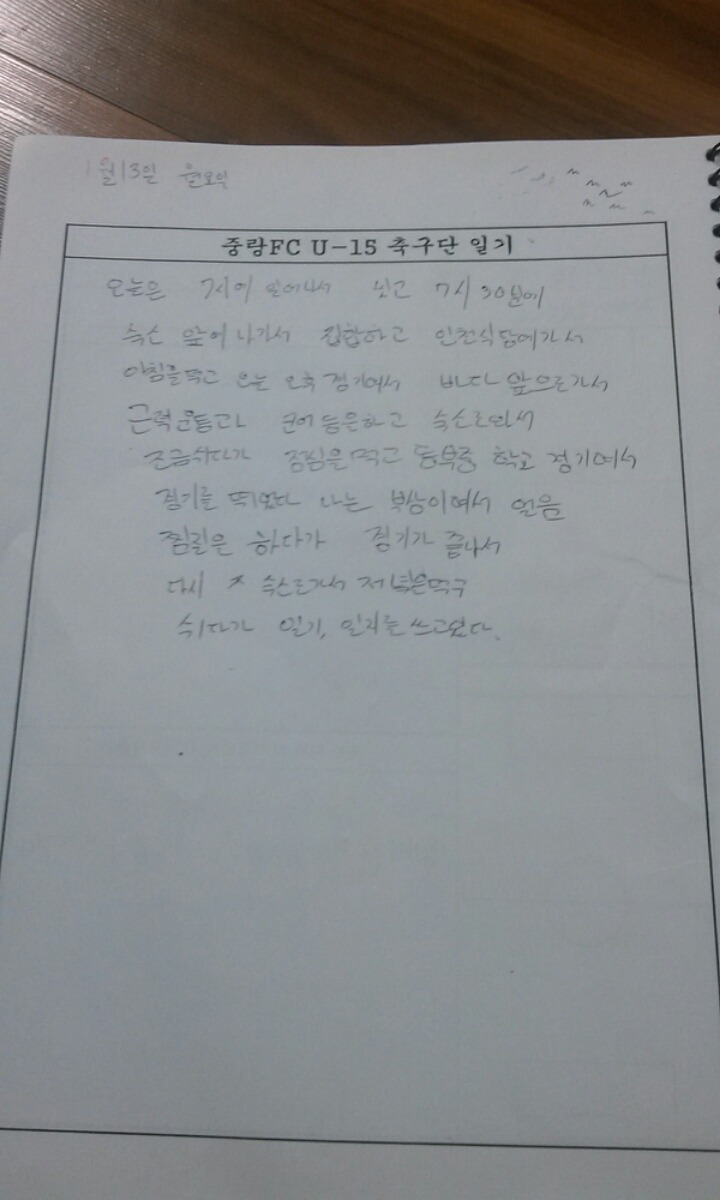 1월13일 월요일
중랑FC U-15 축구단 일기
오늘은 7시에 일어나서 씻고 7시 30분에
숙소 앞에 나가서 집합하고 인천식당에가서
아침을먹고 오늘 오후 경기여서 바다 앞으로가서
근력운동과 하고 숙소로와서
조금쉬다가 점심을 먹고 동부중 학교 경기여서
경기를 뛰었다 나는 부상이여서 얼음
찜질은 하다가 경기가 끝나서
다시 숙소로가서 저녁은먹구
쉬다가 일기, 일지를 쓰고있다.